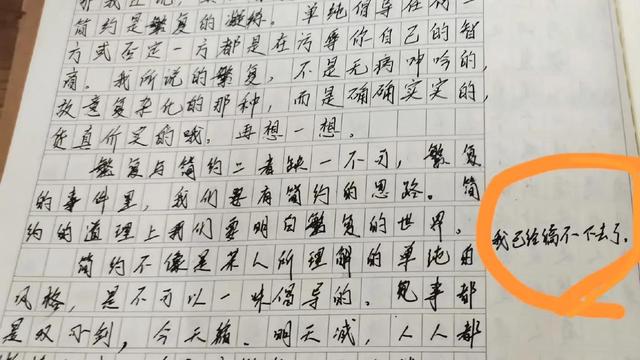 简约是繁复的凝练。单纯倡导任何一
方式否定一方都是在污辱你自己的智
商。我所说的繁复，不是无病呻吟的，
故意复杂化的那种，而是确确实实的，
货真价实的哦。再想一想。
繁复与简约二者缺一不可，繁复
的事件里，我们要有简约的思路。简
约的道理上我们要明白繁复的世界。
我已经编不下去了。
简约不像是某人所理解的单纯自
风格，是不可以一味倡导的。凡事都
是双刃剑，今天猪，明天减，人人都